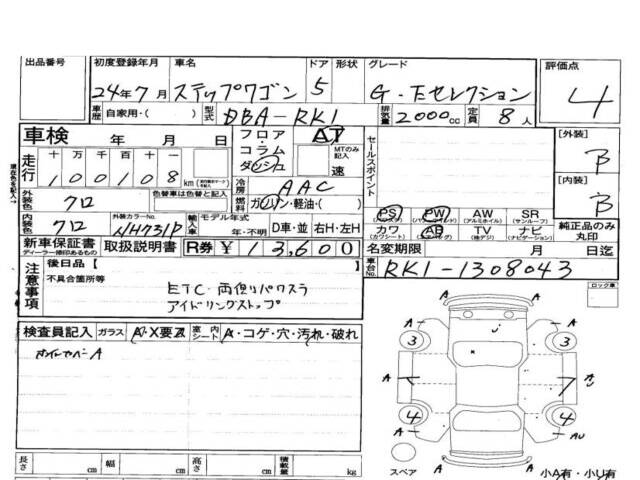 出品番号 初度登録年月 車名 ドア 形状 グレード 評価点
24年7月 ステップワゴン 5 G・Eセレクション 4
車歴 自家用・( ) 型式 DBA-RK1 排気量 2000cc 定員 8人
車検 年 月 日 フロア・コラム・ダッシュ AT MTのみ記入 速 セールスポイント [外装] B
走行 十万千百十一 100108 km
現在色を記入
外装色 クロ 色替車は色替と記入 冷房 AAC [内装] B
燃料 ガソリン・軽油・( )
内装色 クロ 外装カラーNo. NH731P 輸入車 モデル年式 年・不明 D車・並 右H・左H
PS (パワステ) PW (パワーウインド) AW (アルミホイル) SR (サンルーフ)
カワ (カワシート) AB (エアバッグ) TV (純デジ) ナビ (ナビゲーション) 純正品のみ丸印
新車保証書 ディーラー捺印あるもの 取扱説明書 R券 ¥ 13,600 名変期限 月 日迄
注意事項 後日品【 】 車台No. RK1-1308043
不具合箇所等
ETC・両側リパワスラ
アイドリングストップ
ロック車
検査員記入 ガラス A・X要 室内シート A・コゲ・穴・汚れ・破れ
A
A A
3 3
A A
4 4
A AU
A
長さ cm 幅 cm 高さ cm 積載量 kg スペア 小A有・小U有